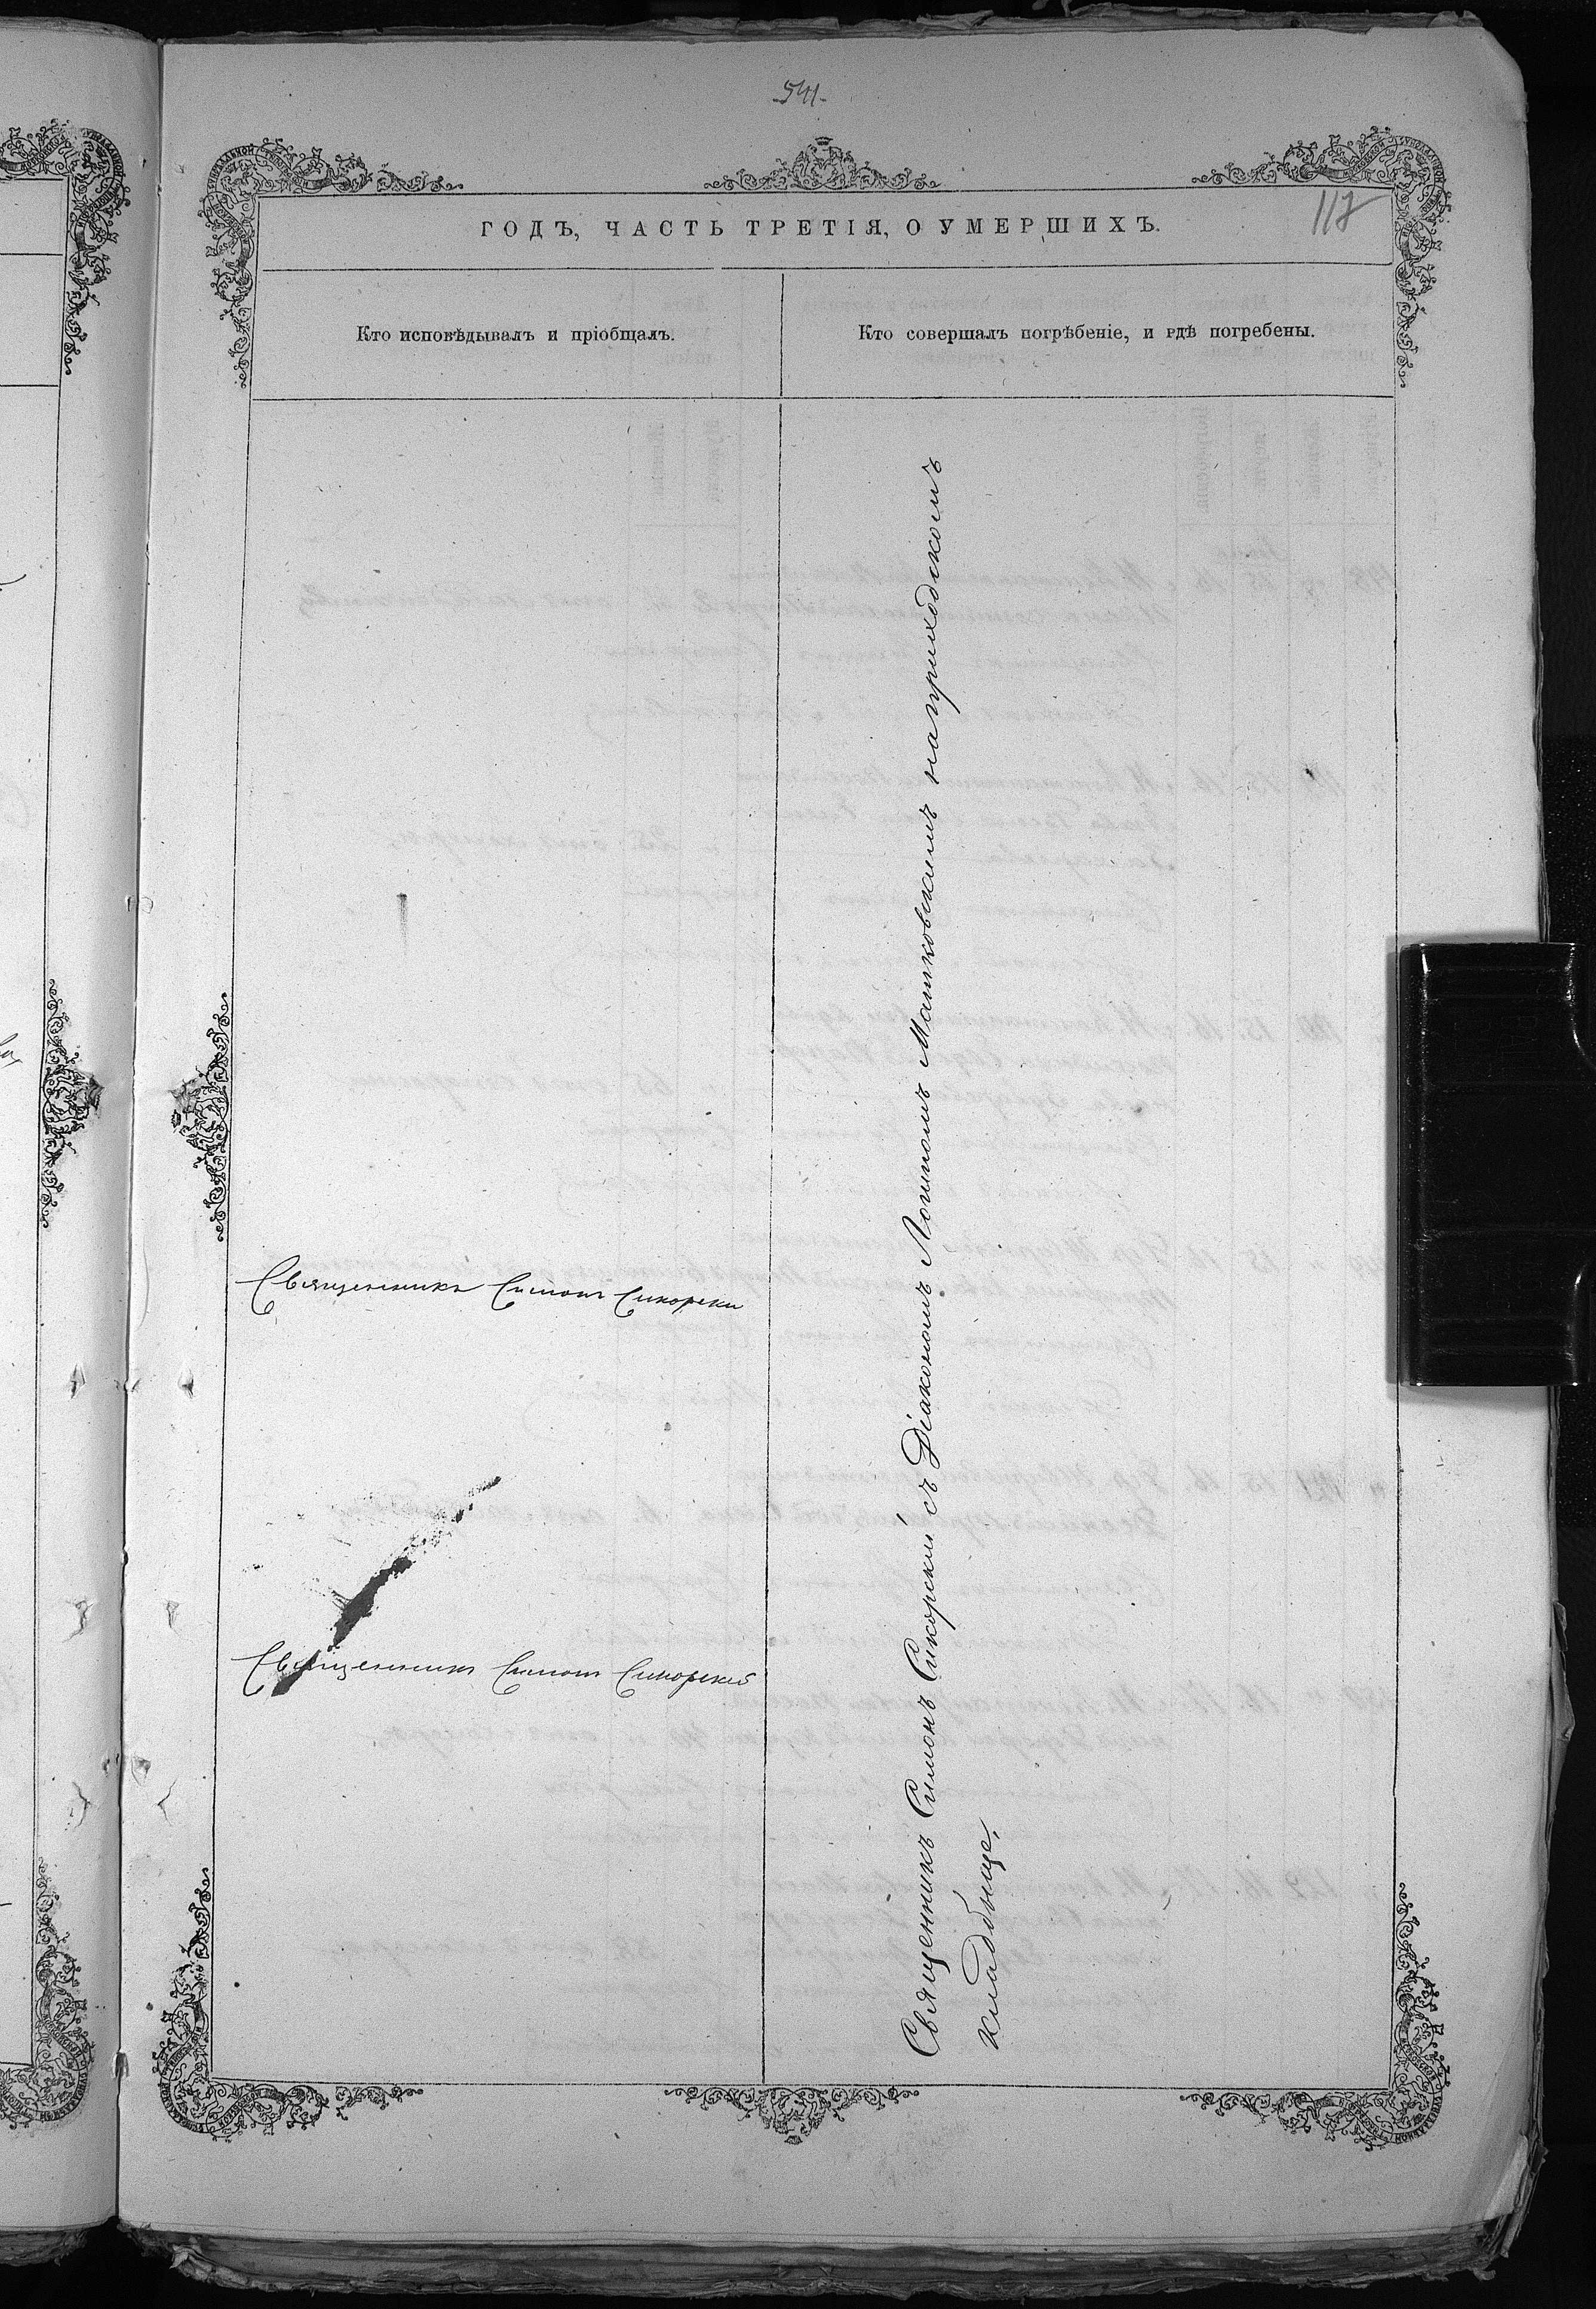 541.
117
ГОДЪ, ЧАСТЬ ТРЕТІЯ, О УМЕРШИХЪ.
Кто исповѣдывалъ и пріобщалъ.
Кто совершалъ погрѣбеніе, и гдѣ погребены.
Священникъ Симонъ Сикорски
Священникъ Симонъ Сикорскій
Священникъ Симонъ Сикорскій съ Діакономъ Логиномъ Матковскимъ на приходскомъ
кладбище,